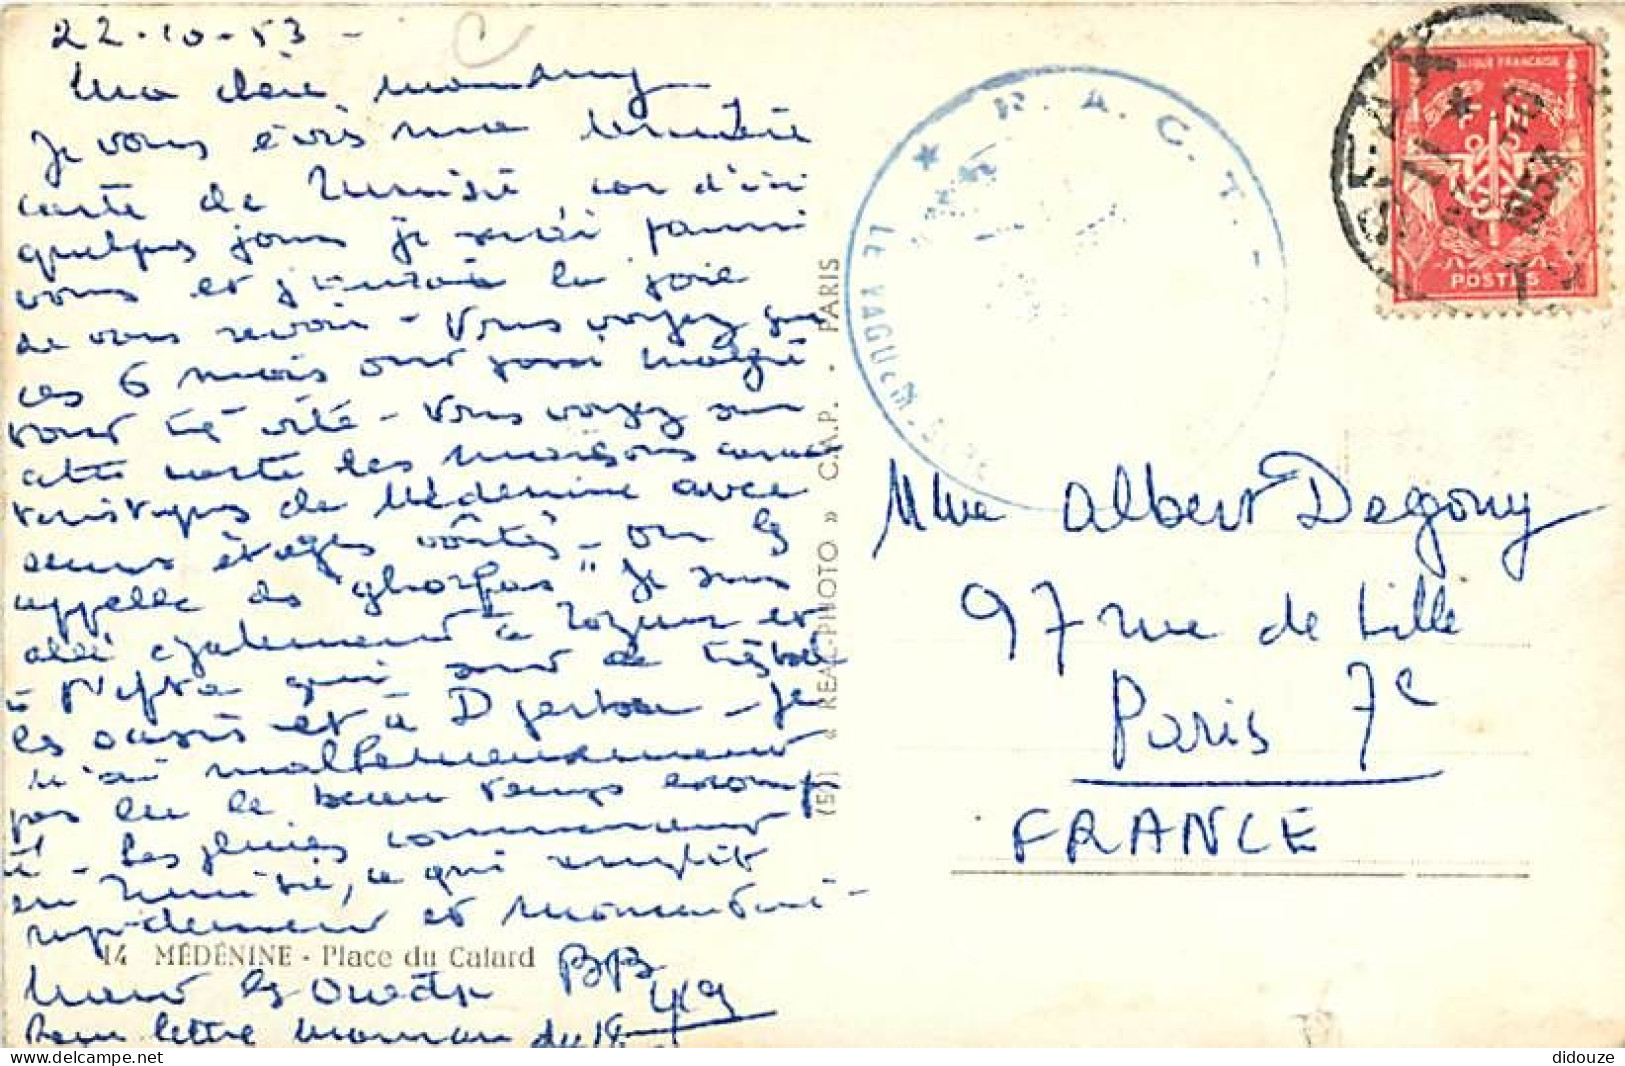 22-10-53 -
Ma chère mamdumy
Je vous écris une dernière
carte de Tunisie car d'ici
quelques jours je serai parmi
vous et j'aurai la joie
de vous revoir - Vous voyez que
ces 6 mois ont passé malgré
tout très vite - Vous voyez sur
cette carte les maisons carac
téristiques de Médenine avec
leurs étages voûtés - on les
appelle des "ghorfas" Je suis
allé également à Tozeur et
à Nefta qui sont de très bel
les oasis et à Djerba - Je
n'ai malheureusement
pas eu le beau temps escompt
é - Les pluies commencent
en Tunisie, ce qui remplit
rapidement et momentané-
ment les Oueds BB
Reçu lettre maman du 19
14 MÉDENINE - Place du Calard
(5) « REAL-PHOTO » C.A.P. - PARIS
★ R. A. C. T. -
LE VAGUEMESTRE
RÉPUBLIQUE FRANÇAISE
F N
POSTES
1953
Mme Albert Degouy
97 rue de Lille
Paris 7e
FRANCE
didouze